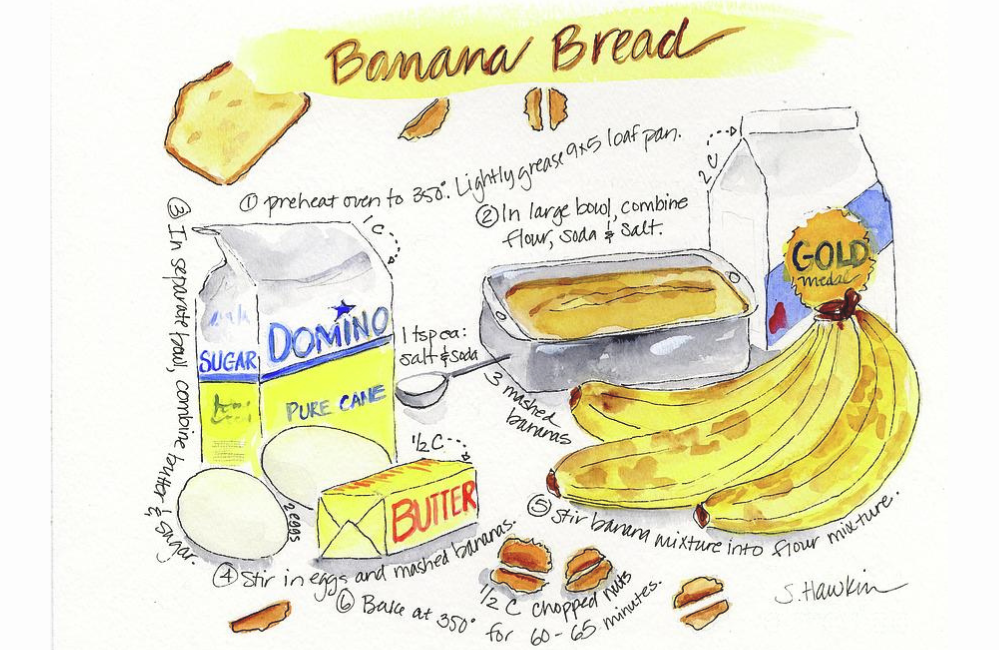 Banana Bread
① preheat oven to 350°. Lightly grease 9x5 loaf pan.
② In large bowl, combine
flour, soda & salt.
2 C
GOLD
medal
③ In separate bowl, combine butter & sugar.
1 C
DOMINO
SUGAR
PURE CANE
1 tsp ea:
salt & soda
3 mashed
bananas
1/2 C
BUTTER
2 eggs
④ Stir in eggs and mashed bananas.
⑤ Stir banana mixture into flour mixture.
1/2 C chopped nuts
⑥ Bake at 350° for 60-65 minutes.
S. Hawkin